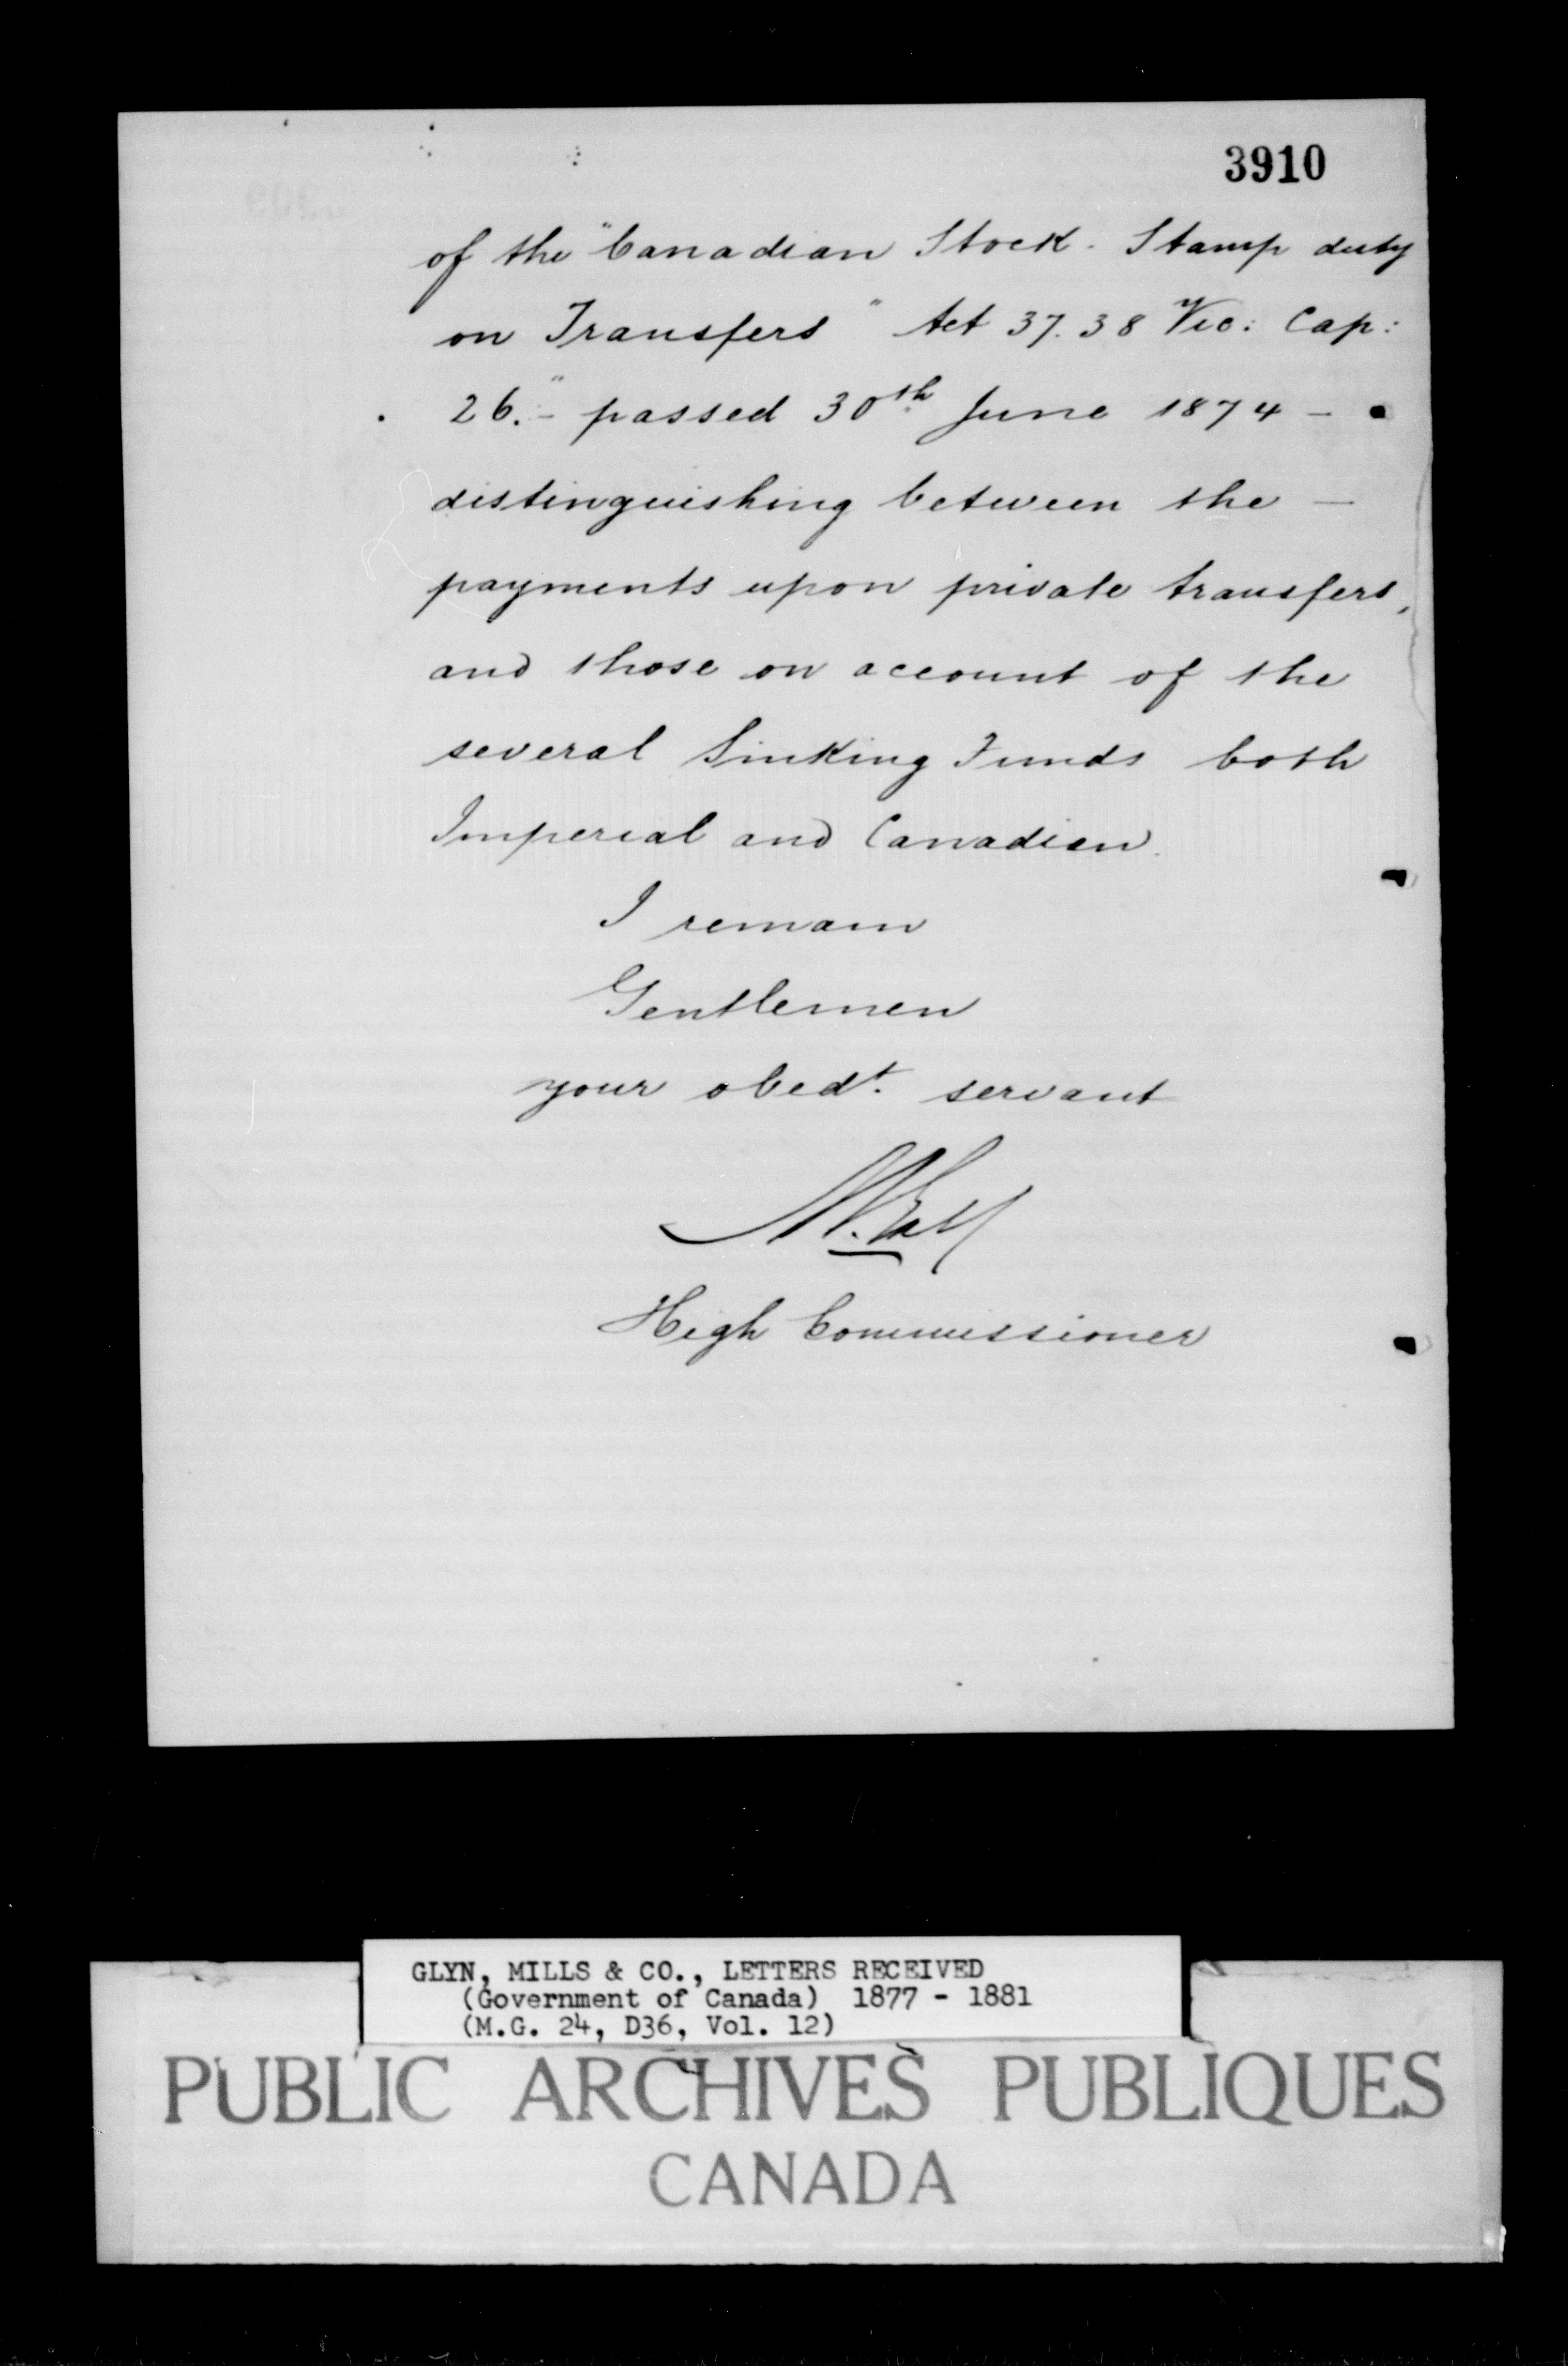 3910
of the "Canadian Stock. Stamp duty
on Transfers" Act 37.38 Vic: Cap:
26." - passed 30th June 1874 -
distinguishing between the —
payments upon private transfers,
and those on account of the
several Sinking Funds both
Imperial and Canadian.
I remain
Gentlemen
your obedt. servant
High Commissioner
GLYN, MILLS & CO., LETTERS RECEIVED
(Government of Canada) 1877 - 1881
(M.G. 24, D36, Vol. 12)
PUBLIC ARCHIVES PUBLIQUES
CANADA